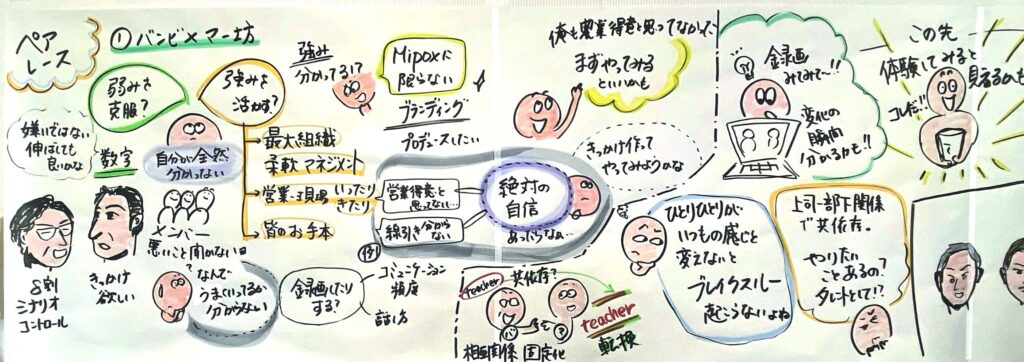 ペア
レース
① バンビ×マー坊
弱みを
克服?
強みを
活かす?
嫌いではない
伸ばしても
良いかな
数字
自分が全然
分かってない
強み
分かってる!?
Mipoxに
限らない
ブランディング
プロデュースしたい
最大組織
柔軟マネジメント
営業⇔現場 いったり
きたり
皆のお手本
営業得意と
思ってない…
線引き分からない
絶対の
自信
あったらなぁ…
8割
シナリオ
コントロール
きっかけ
欲しい
メンバー
悪いこと聞かない日
なんで
うまくいってるか
分からない
録画したり
する?
コミュニケーション
頻度
話し方
俺も製業得意と思ってなかった
まずやってみる
といいかも
きっかけ作って
やってみようかな
teacher
共依存?
teacher
転換
相互関係 固定化
録画
みてみて〜!!
変化の
瞬間
分かるかも!!
この先
体験してみると
見えるかも
コレだ!!
ひとりひとりが
いつもの感じと
変えないと
ブレイクスルー
起こらないよね
上司-部下関係
で共依存。
やりたい
ことあるの?
タレントとして!?